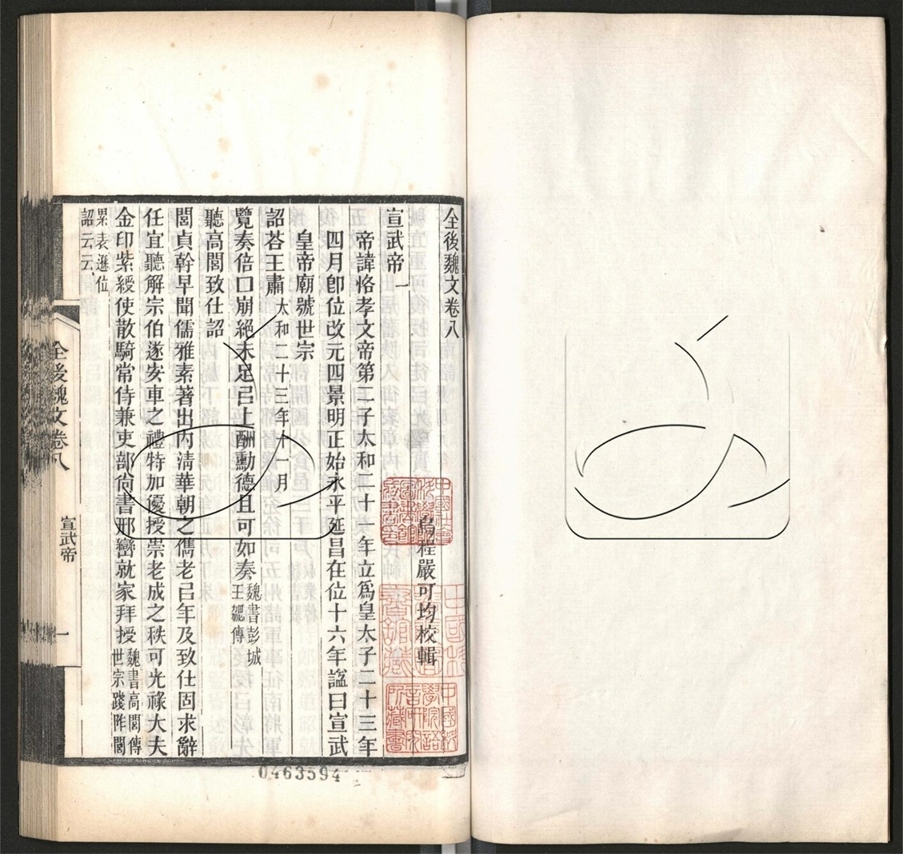 全後魏文卷八
烏程嚴可均校輯
宣武帝一
帝諱恪孝文帝第二子太和二十一年立爲皇太子二十三年
四月卽位改元四景明正始永平延昌在位十六年諡曰宣武
皇帝廟號世宗
詔荅王肅 太和二十三年十一月
覽奏倍口崩絕未足㠯上酬勳德且可如奏 魏書彭城王勰傳
聽高閭致仕詔
閭貞幹早聞儒雅素著出內清華朝之儁老㠯年及致仕固求辭
任宜聽解宗伯遂安車之禮特加優授崇老成之秩可光祿大夫
金印紫綬使散騎常侍兼吏部尙書邢巒就家拜授 魏書高閭傳世宗踐阼閭
累表遜位
詔云云
全後魏文卷八
宣武帝
一
0463594